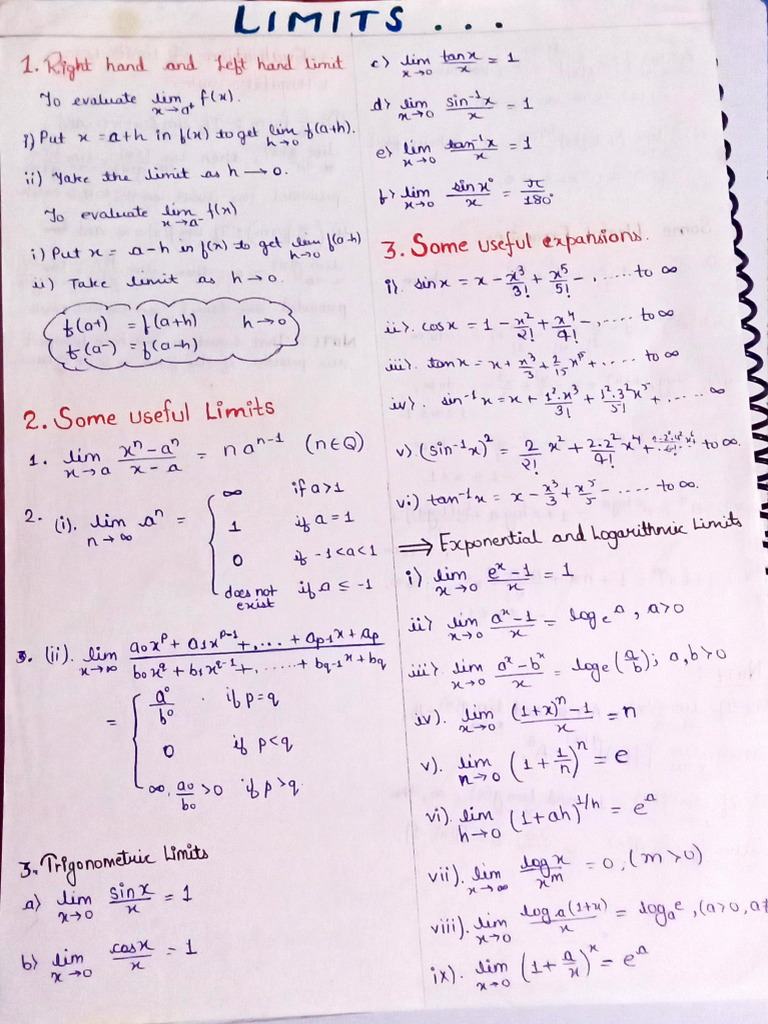 LIMITS...
1. Right hand and Left hand limit
To evaluate lim x→a⁺ f(x).
i) Put x = a+h in f(x) to get lim h→0 f(a+h).
ii) Take the limit as h → 0.
To evaluate lim x→a⁻ f(x)
i) Put x = a-h in f(x) to get lim h→0 f(a-h)
ii) Take limit as h→0.
f(a+) = f(a+h) h→0
f(a-) = f(a-h)
2. Some Useful Limits
1. lim x→a (xⁿ-aⁿ)/(x-a) = n aⁿ⁻¹ (n∈Q)
2. (i). lim n→∞ aⁿ =
∞ if a>1
1 if a=1
0 if -1<a<1
does not exist if a ≤ -1
3. (ii). lim x→∞ (a₀xᵖ + a₁xᵖ⁻¹+,... + aₚ₋₁x + aₚ)/(b₀x^q + b₁x^(q-1)+,......+ b_(q-1)x + b_q)
= a⁰/b⁰ . if p=q
0 if p<q
∞, a₀/b₀ >0 if p>q
3. Trigonometric Limits
a) lim x→0 sinx/x = 1
b) lim x→0 cosx/x = 1
c) lim x→0 tanx/x = 1
d) lim x→0 sin⁻¹x/x = 1
e) lim x→0 tan⁻¹x/x = 1
f) lim x→0 sinx°/x = π/180°
3. Some useful expansions.
i). sinx = x - x³/3! + x⁵/5! -, ..... to ∞
ii). cosx = 1 - x²/2! + x⁴/4! -, ..... to ∞
iii). tanx = x + x³/3 + 2/15 x⁵ +, ..... to ∞
iv). sin⁻¹x = x + 1².x³/3! + 1².3²x⁵/5! +, ..... ∞
v). (sin⁻¹x)² = 2/2! x² + 2.2²/4! x⁴ + to ∞.
vi) tan⁻¹x = x - x³/3 + x⁵/5 - ..... to ∞.
⇒ Exponential and Logarithmic Limits
i) lim x→0 (eˣ-1)/x = 1
ii) lim x→0 (aˣ-1)/x = logₑ a, a>0
iii) lim x→0 (aˣ-bˣ)/x = logₑ(a/b); a,b>0
iv). lim x→0 ((1+x)ⁿ-1)/x = n
v). lim n→0 (1+1/n)ⁿ = e
vi). lim h→0 (1+ah)^(1/h) = eᵃ
vii). lim x→∞ logx/xᵐ = 0, (m>0)
viii). lim x→0 logₐ(1+x)/x = logₐe, (a>0, a≠
ix). lim x→0 (1+a/x)ˣ = eᵃ